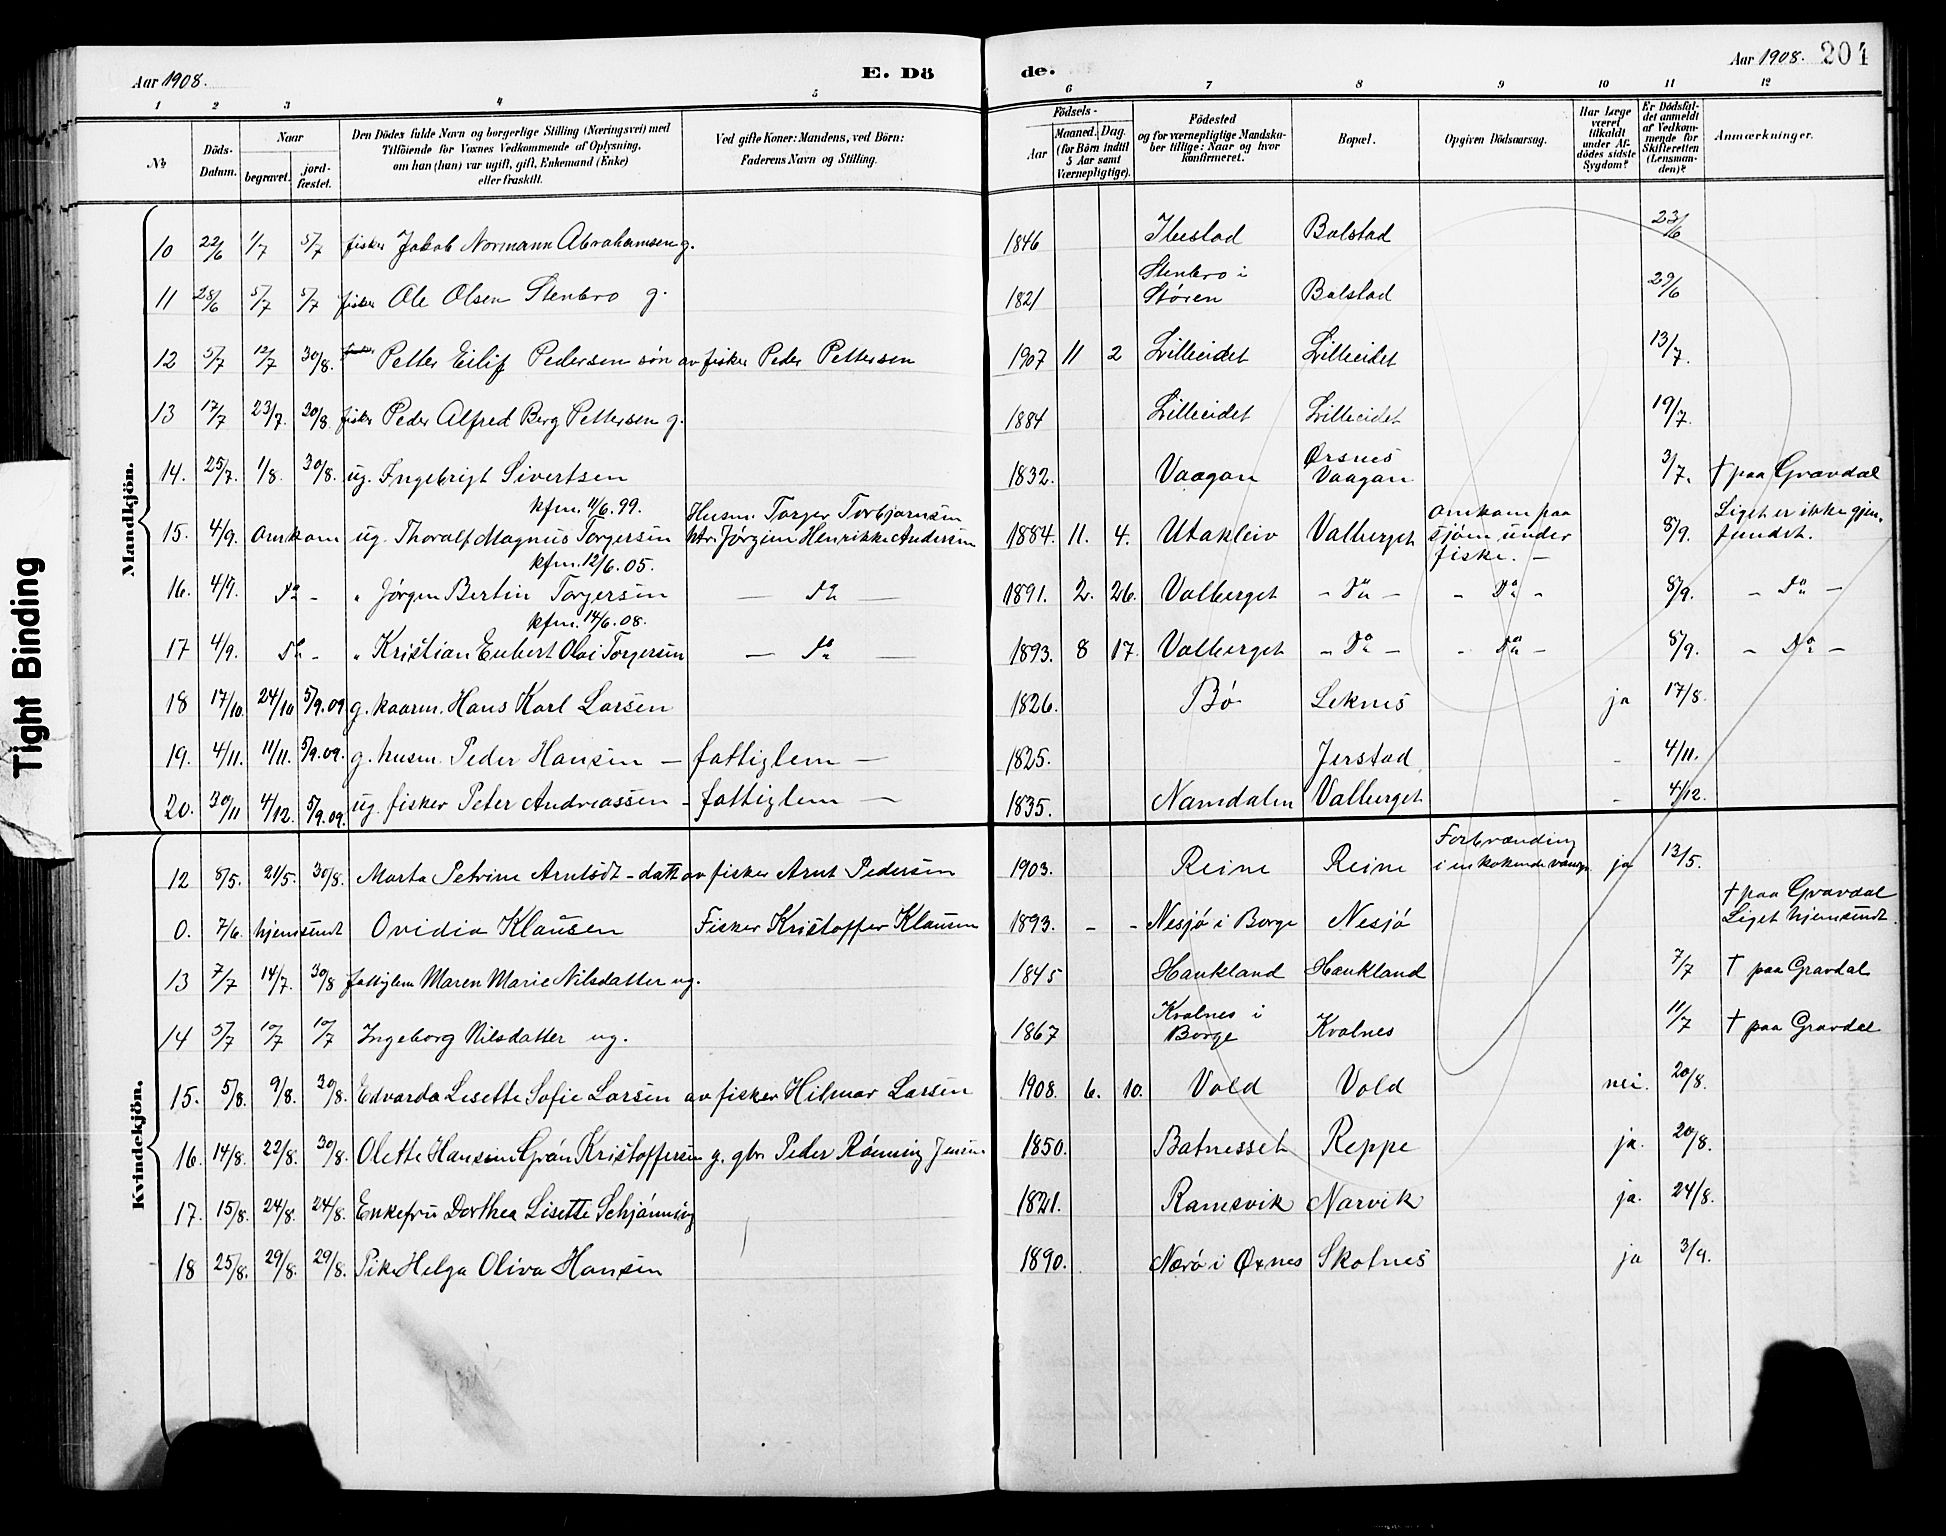 Aar 1908. E. Dö de. Aar 1908. 204
1 2 3 4 5 6 7 8 9 10 11 12
No
Döds-Datum.
Naar
begravet.
jord-fæstet.
Den Dödes fulde Navn og borgerlige Stilling (Næringsvei) med
Tilföiende for Voxnes Vedkommende af Oplysning,
om han (hun) var ugift, gift, Enkemand (Enke)
eller fraskilt.
Ved gifte Koner: Mandens, ved Börn:
Faderens Navn og Stilling.
Födsels-
Aar
Maaned. Dag.
(for Börn indtil
5 Aar samt
Værnepligtige).
Födested
og for værnepligtige Mandska-
ber tillige: Naar og hvor
konfirmeret.
Bopæl.
Opgiven Dödsaarsag.
Har Læge
været
tilkaldt
under Af-
dödes sidste
Sygdom?
Er Dödsfal-
det anmeldt
af Vedkom-
mende for
Skifteretten
(Lensman-
den)?
Anmærkninger.
Mandkjön.
10 22/6 1/7 5/7 fisker Jakob Normann Abrahamsen g. 1846 Ibestad Balstad 23/6
11 28/6 5/7 5/7 fisker Ole Olsen Stenbro g. 1821 Stenbro i Støren Balstad 29/6
12 5/7 12/7 30/8. fisker Petter Eilif Pedersen søn av fisker Peder Pettersen 1907 11 2 Lilleeidet Lilleeidet 13/7.
13 17/7 23/7. 30/8. fisker Peder Alfred Berg Pettersen g. 1884 Lilleeidet Lilleeidet 19/7.
14. 25/7. 1/8. 30/8. ug. Ingebrigt Sivertsen 1832. Vaagan Ørsnes Vaagan 3/7. † paa Gravdal
kfm. 11/6. 99.
15. 4/9. Omkom ug. Thoralf Magnus Torgersen Husm. Torger Torbjørnsen htr. Jørgine Henrikke Andersen 1884. 11. 4. Utakleiv Valberget Omkom paa sjøen under fiske. - 8/9. Liget er ikke gjen-fundet.
kfm. 12/6. 05.
16. 4/9. Do - " Jørgen Bertin Torgersen - Do - 1891. 2. 26. Valberget - Do - - Do - 8/9. - Do -
kfm. 14/6. 08.
17 4/9. Do - " Kristian Eubert Olai Torgersen - Do - 1893. 8 17. Valberget - Do - - Do - 8/9. - Do -
18 17/10. 24/10 5/9.09 g. kaarm. Hans Karl Larsen 1826. Bø Leknes ja 17/8.
19. 4/11. 11/11. 5/9.09. g. husm. Peder Hansen - fattiglem - 1825. Jerstad - 4/11.
20. 30/11 4/12. 5/9.09. ug. fisker Peter Andreassen - fattiglem - 1835. Namdalen Valberget - 4/12.
Kvindekjön.
12 8/5. 21/5. 30/8. Marta Petrine Arntsdt - datt av fisker Arnt Pedersen 1903. Reine Reine Forbrænding i en kokende ja 13/5.
0. 7/6. hjemsendt Ovidia Klausen Fisker Kristoffer Klausen 1893. - - Nesjø i Borge Nesjø † paa Gravdal Liget hjemsendt.
13 7/7 14/7. 30/8 fattiglem Maren Marie Nilsdatter ug. 1845 Haukland Haukland 7/7 † paa Gravdal
14 5/7 10/7 10/7 Ingeborg Nilsdatter ug. 1867 Kvalnes i Borge Kvalnes 11/7 † paa Gravdal
15. 5/8. 9/8. 30/8. Edvarda Lisette Sofie Larsen av fisker Hilmar Larsen 1908. 6. 10. Vold Vold nei. 20/8.
16. 14/8. 22/8. 30/8. Olette Hansine Grøn Kristoffersen g. gbr. Peder Rønning Jensen 1850. Batnesset Reppe ja. 20/8.
17. 15/8. 24/8. 24/8. Enkefru Dorthea Lisette Schjønning 1821. Ramsvik Narvik ja. 24/8.
18 25/8. 29/8. 29/8. Pike Helga Oliva Hansen 1890. Nærø i Øxnes Skotnes ja 3/9.
Tight Binding